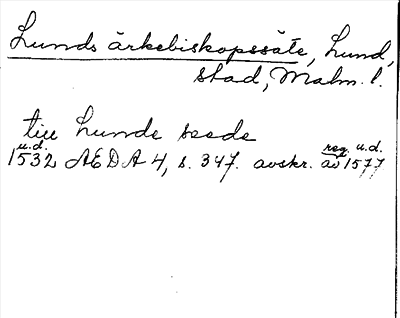 Lunds ärkebiskopssäte, Lund,
stad, Malm. l.
till Lunde seede
u.d. reg. u.d.
1532 AEDA 4, s. 347. avskr. av 1577